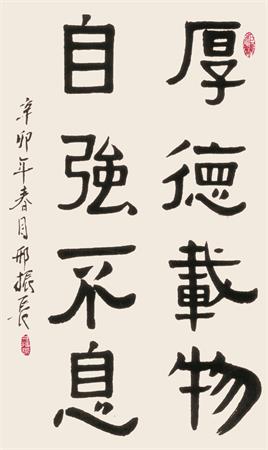 厚德載物
自強不息
辛卯年春月邢振長